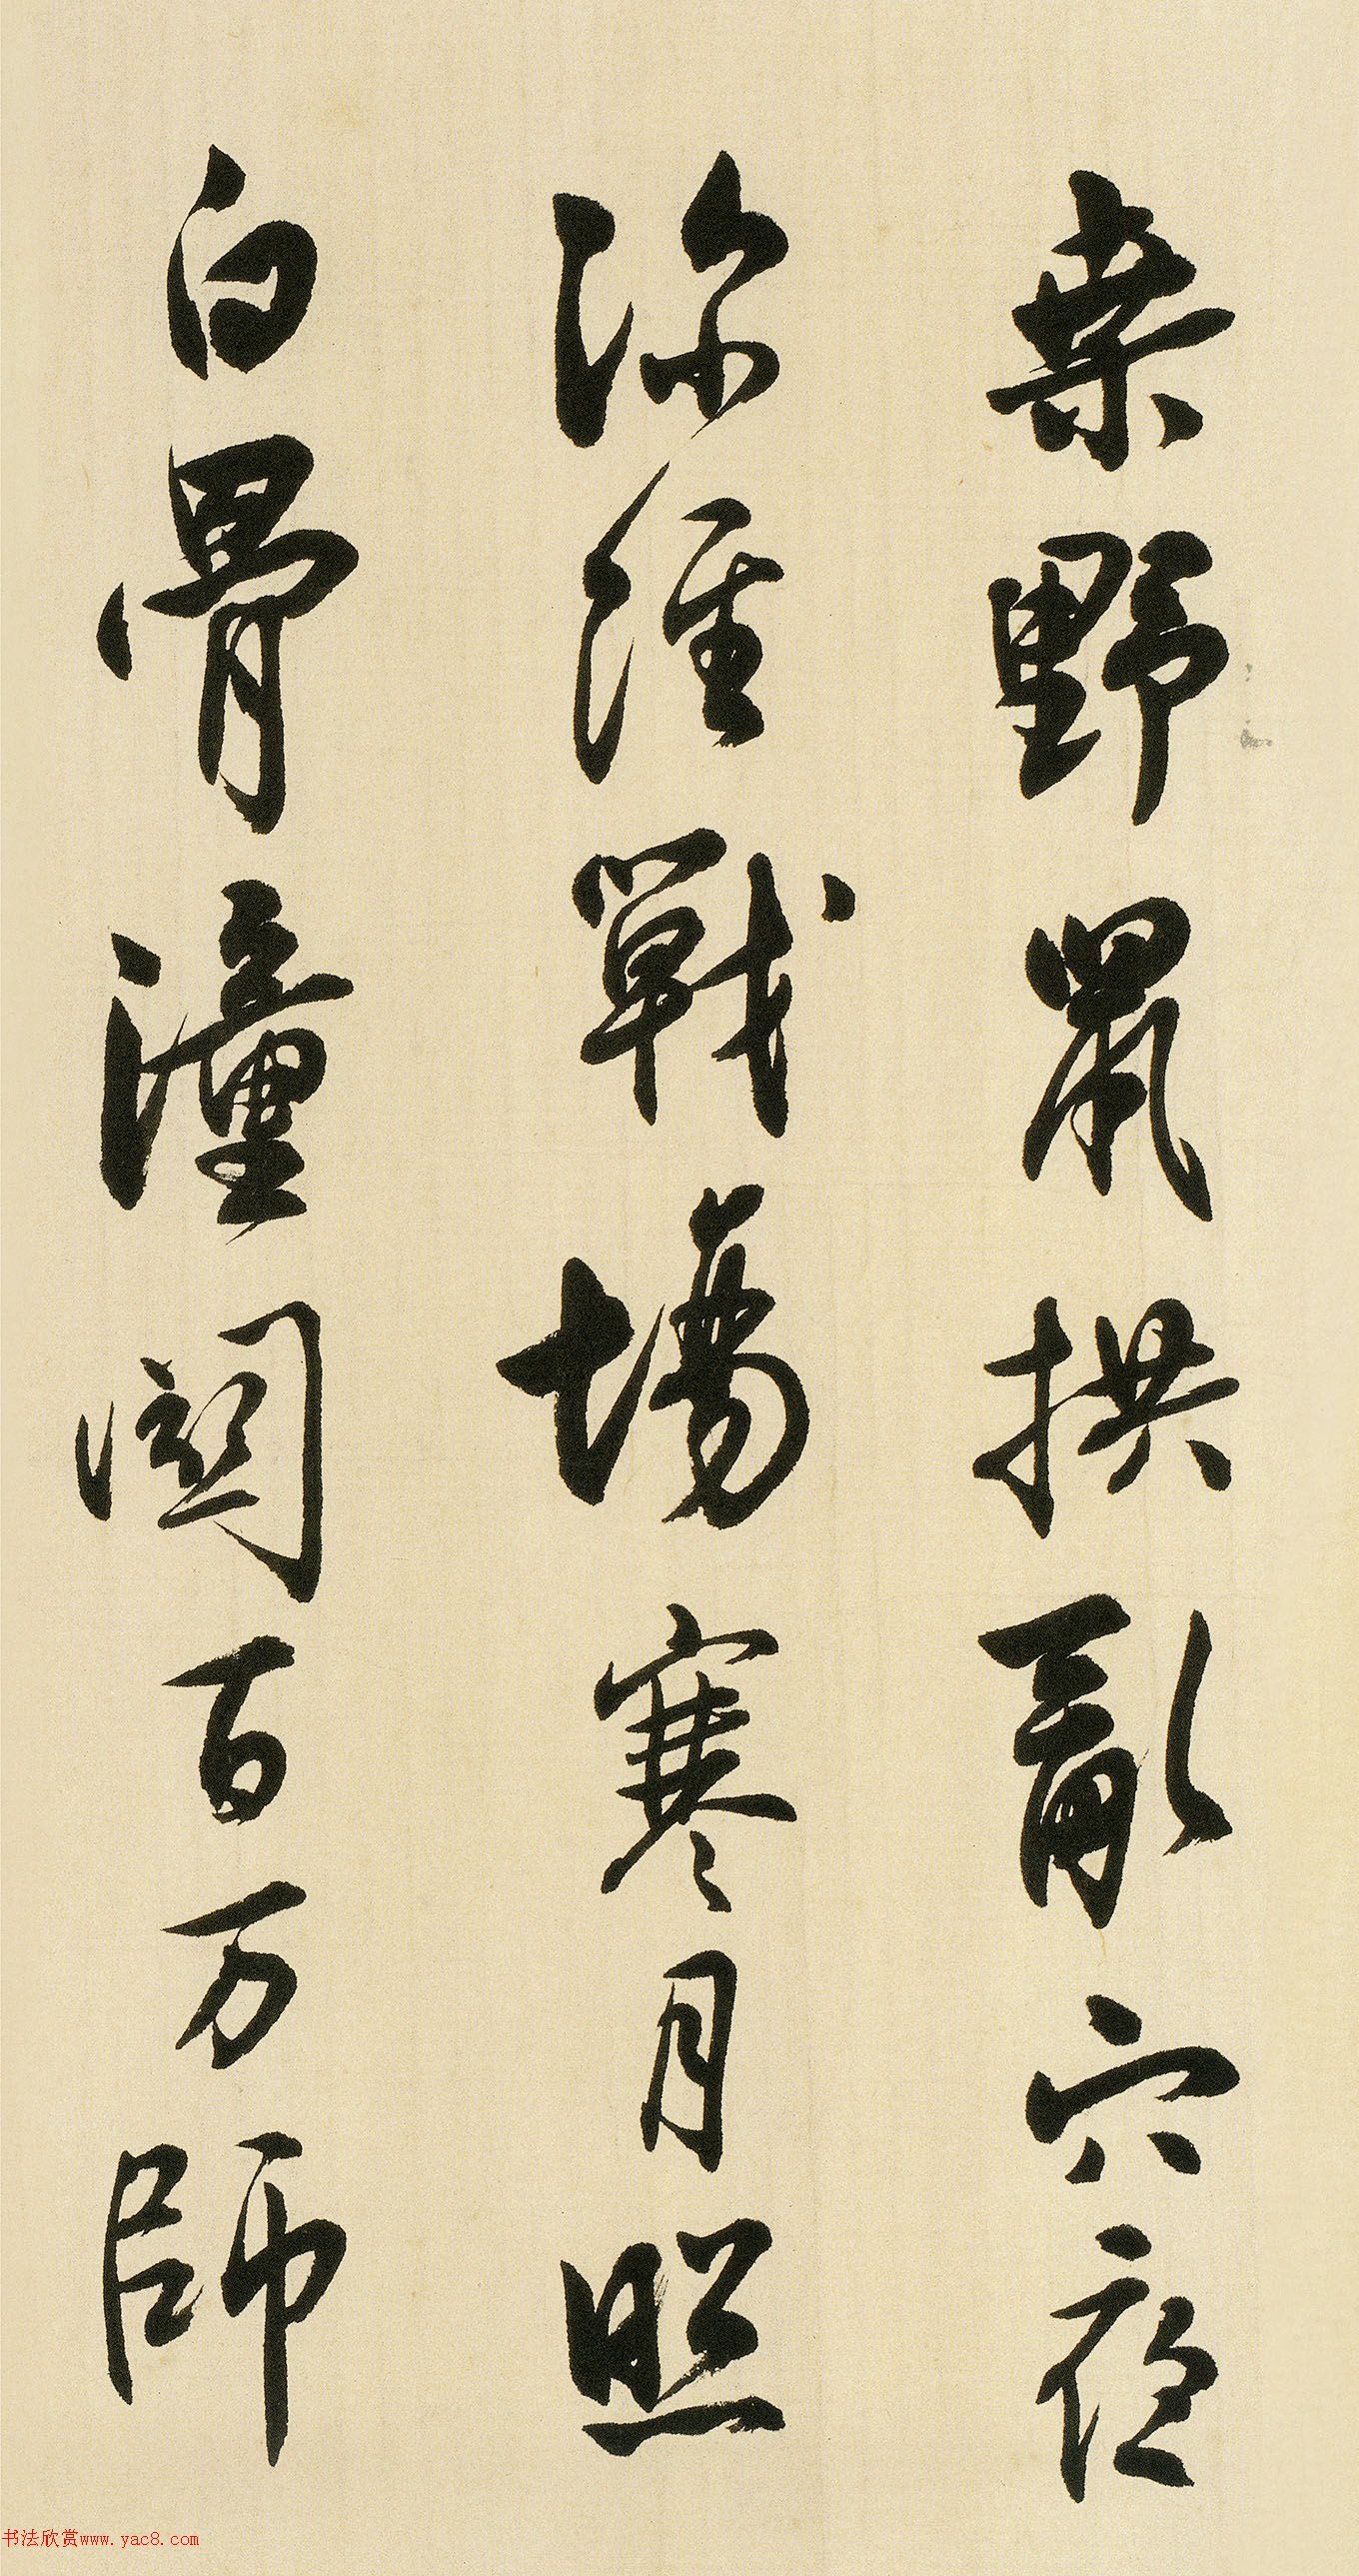 桒野鼠拱亂穴夜
深經戰場寒月照
白骨潼關百万師
书法欣赏www.yac8.com